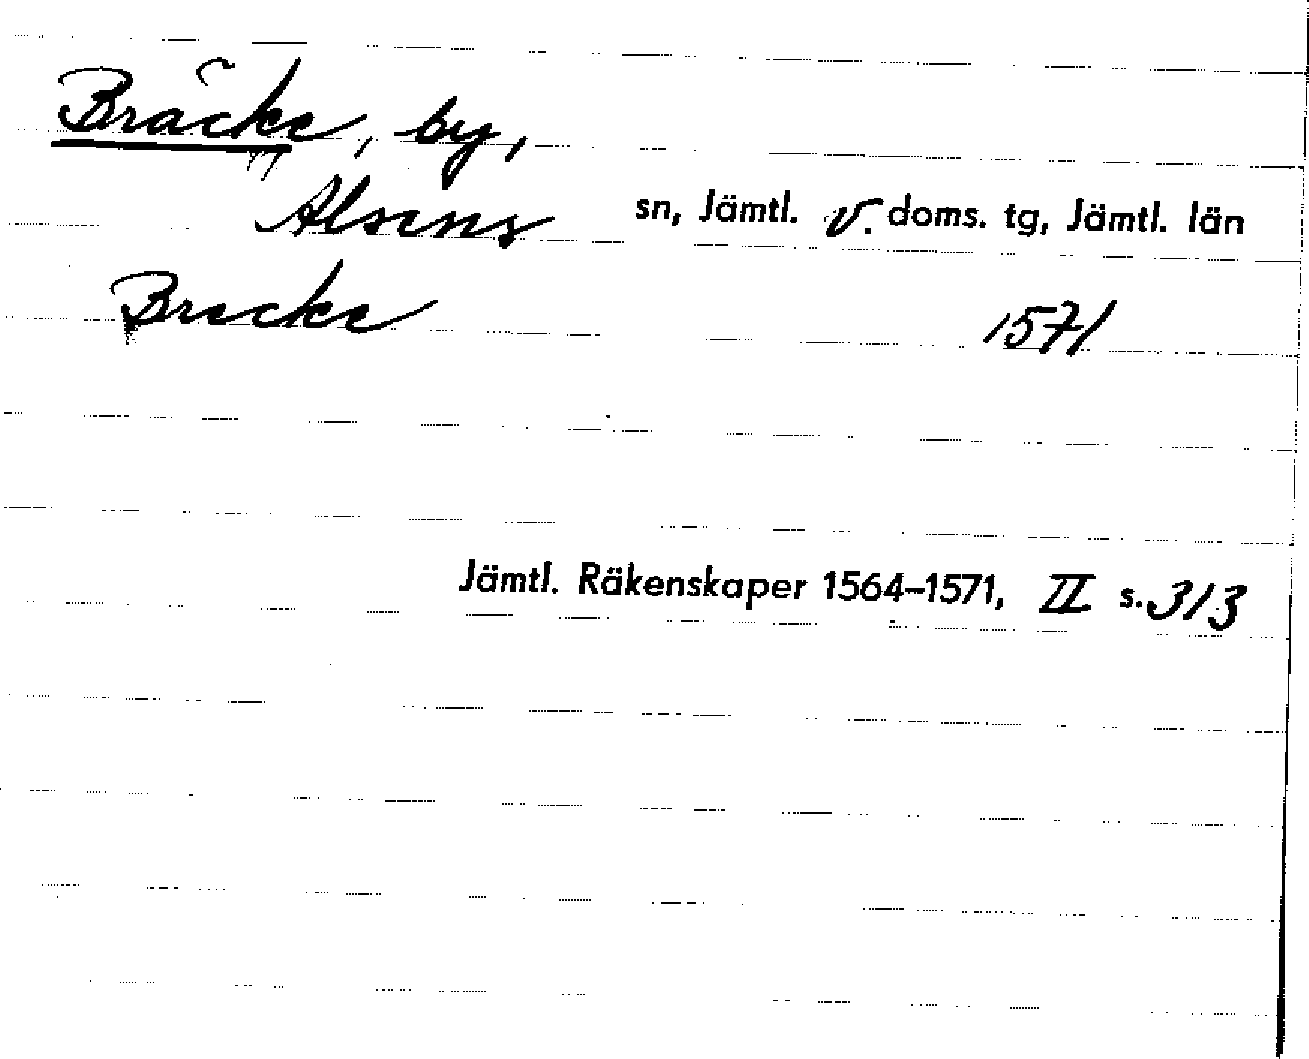 Bräcke, by,
Alsens sn, Jämtl. v. doms. tg, Jämtl. län
Brecke 1571
Jämtl. Räkenskaper 1564–1571, II s. 313